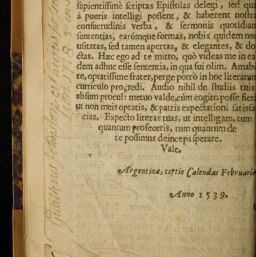 sapientissimè scriptas Epistolas delegi, sed quæ
à pueris intelligi possent, & haberent nostræ
consuetudinis verba, & sermonis quotidiani
sententias, earúmque formas, nobis quidem non
usitatas, sed tamen apertas, & elegantes, & do
ctas. Hæc ego ad te mitto, quò videas me in ea
dem adhuc esse sententia, in qua fui olim. Amabo
te, optatissime frater, perge porrò in hoc literarum
curriculo progredi. Audio nihil de studijs tuis
absum procul: metuo valde, cùm cogito posse fieri
ut non meis optatis, & patris expectationi satisfa
cias. Expecto literas tuas, ut intelligam, tum
quantum profeceris, tum quantum de
te possimus deinceps sperare.
Vale.
Argentinæ, tertio Calendas Februarij
Anno 1539.